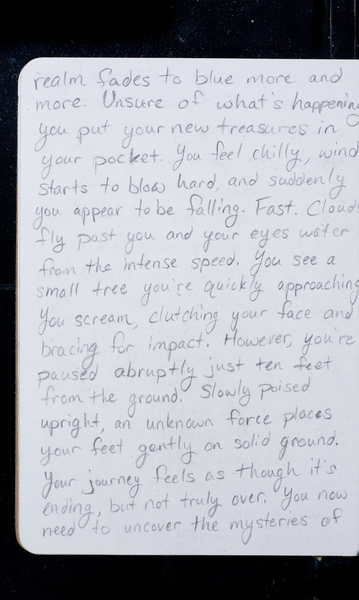 realm fades to blue more and
more. Unsure of what's happening
you put your new treasures in
your pocket. You feel chilly, wind
starts to blow hard, and suddenly
you appear to be falling. Fast. Clouds
fly past you and your eyes water
from the intense speed. You see a
small tree you're quickly approaching
You scream, clutching your face and
bracing for impact. However, you're
paused abruptly just ten feet
from the ground. Slowly poised
upright, an unknown force places
your feet gently on solid ground.
Your journey feels as though it's
ending, but not truly over. You now
need to uncover the mysteries of